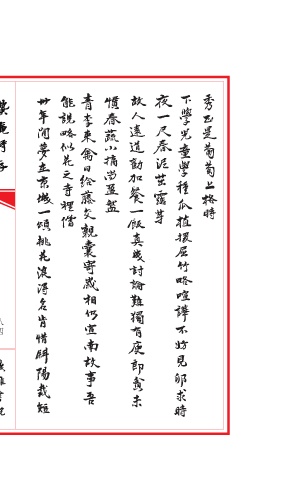 秀正是葡萄上格時
下學兒童學種瓜植援屈竹略喧譁不妨見卵求時
夜一尺春泥茁靄芽
故人遠道勸加餐一飯真成討論難獨有庾郎貧未
慣春蔬小摘當盈盤
青李來禽日給藤文親囊寄感相仍宣南故事吾
能說略似花之寺裡僧
廿年閒夢在京城一頃桃花浪得名肯惜斜陽栽短